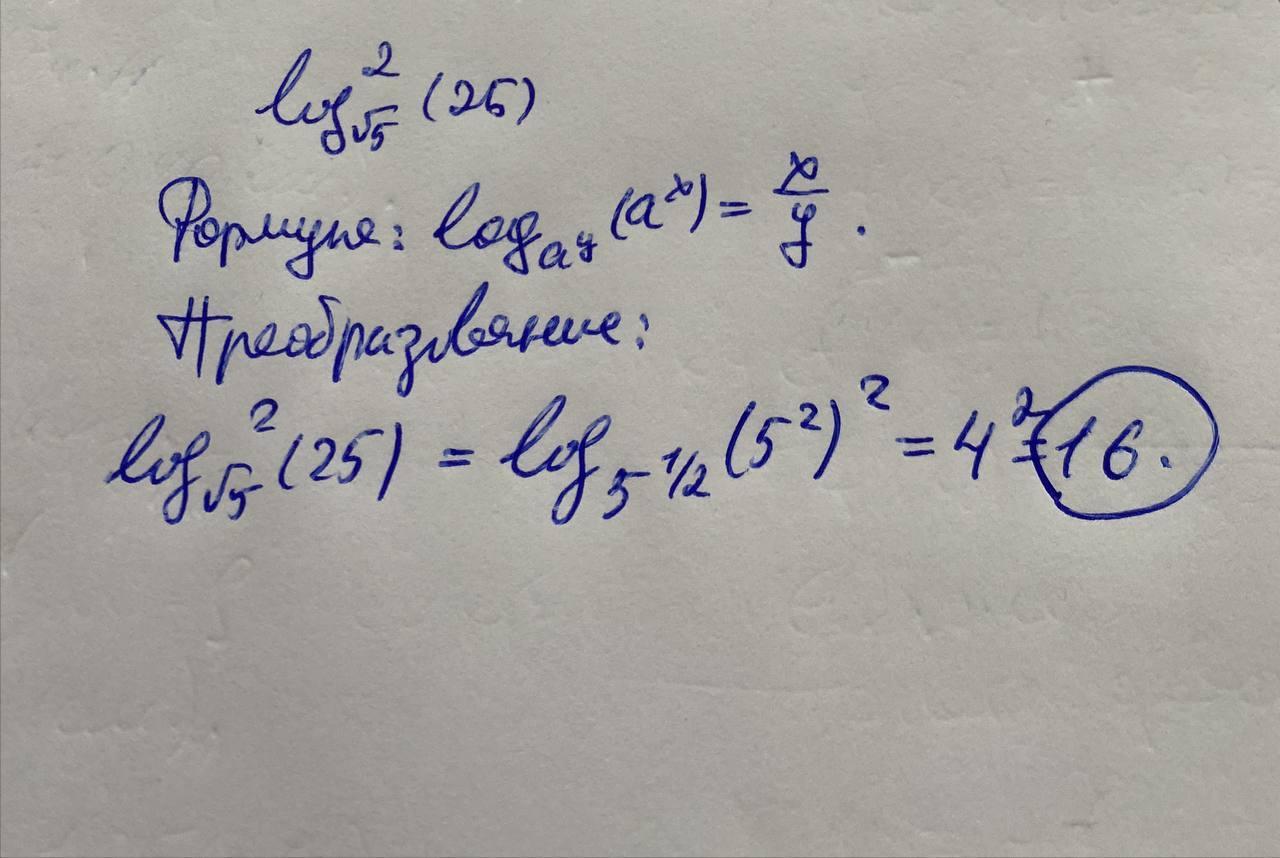 log²_√5 (25)
Формула: log_a^y (a^x) = x/y.
Преобразование:
log²_√5 (25) = log_5^1/2 (5²)² = 4² = 16.